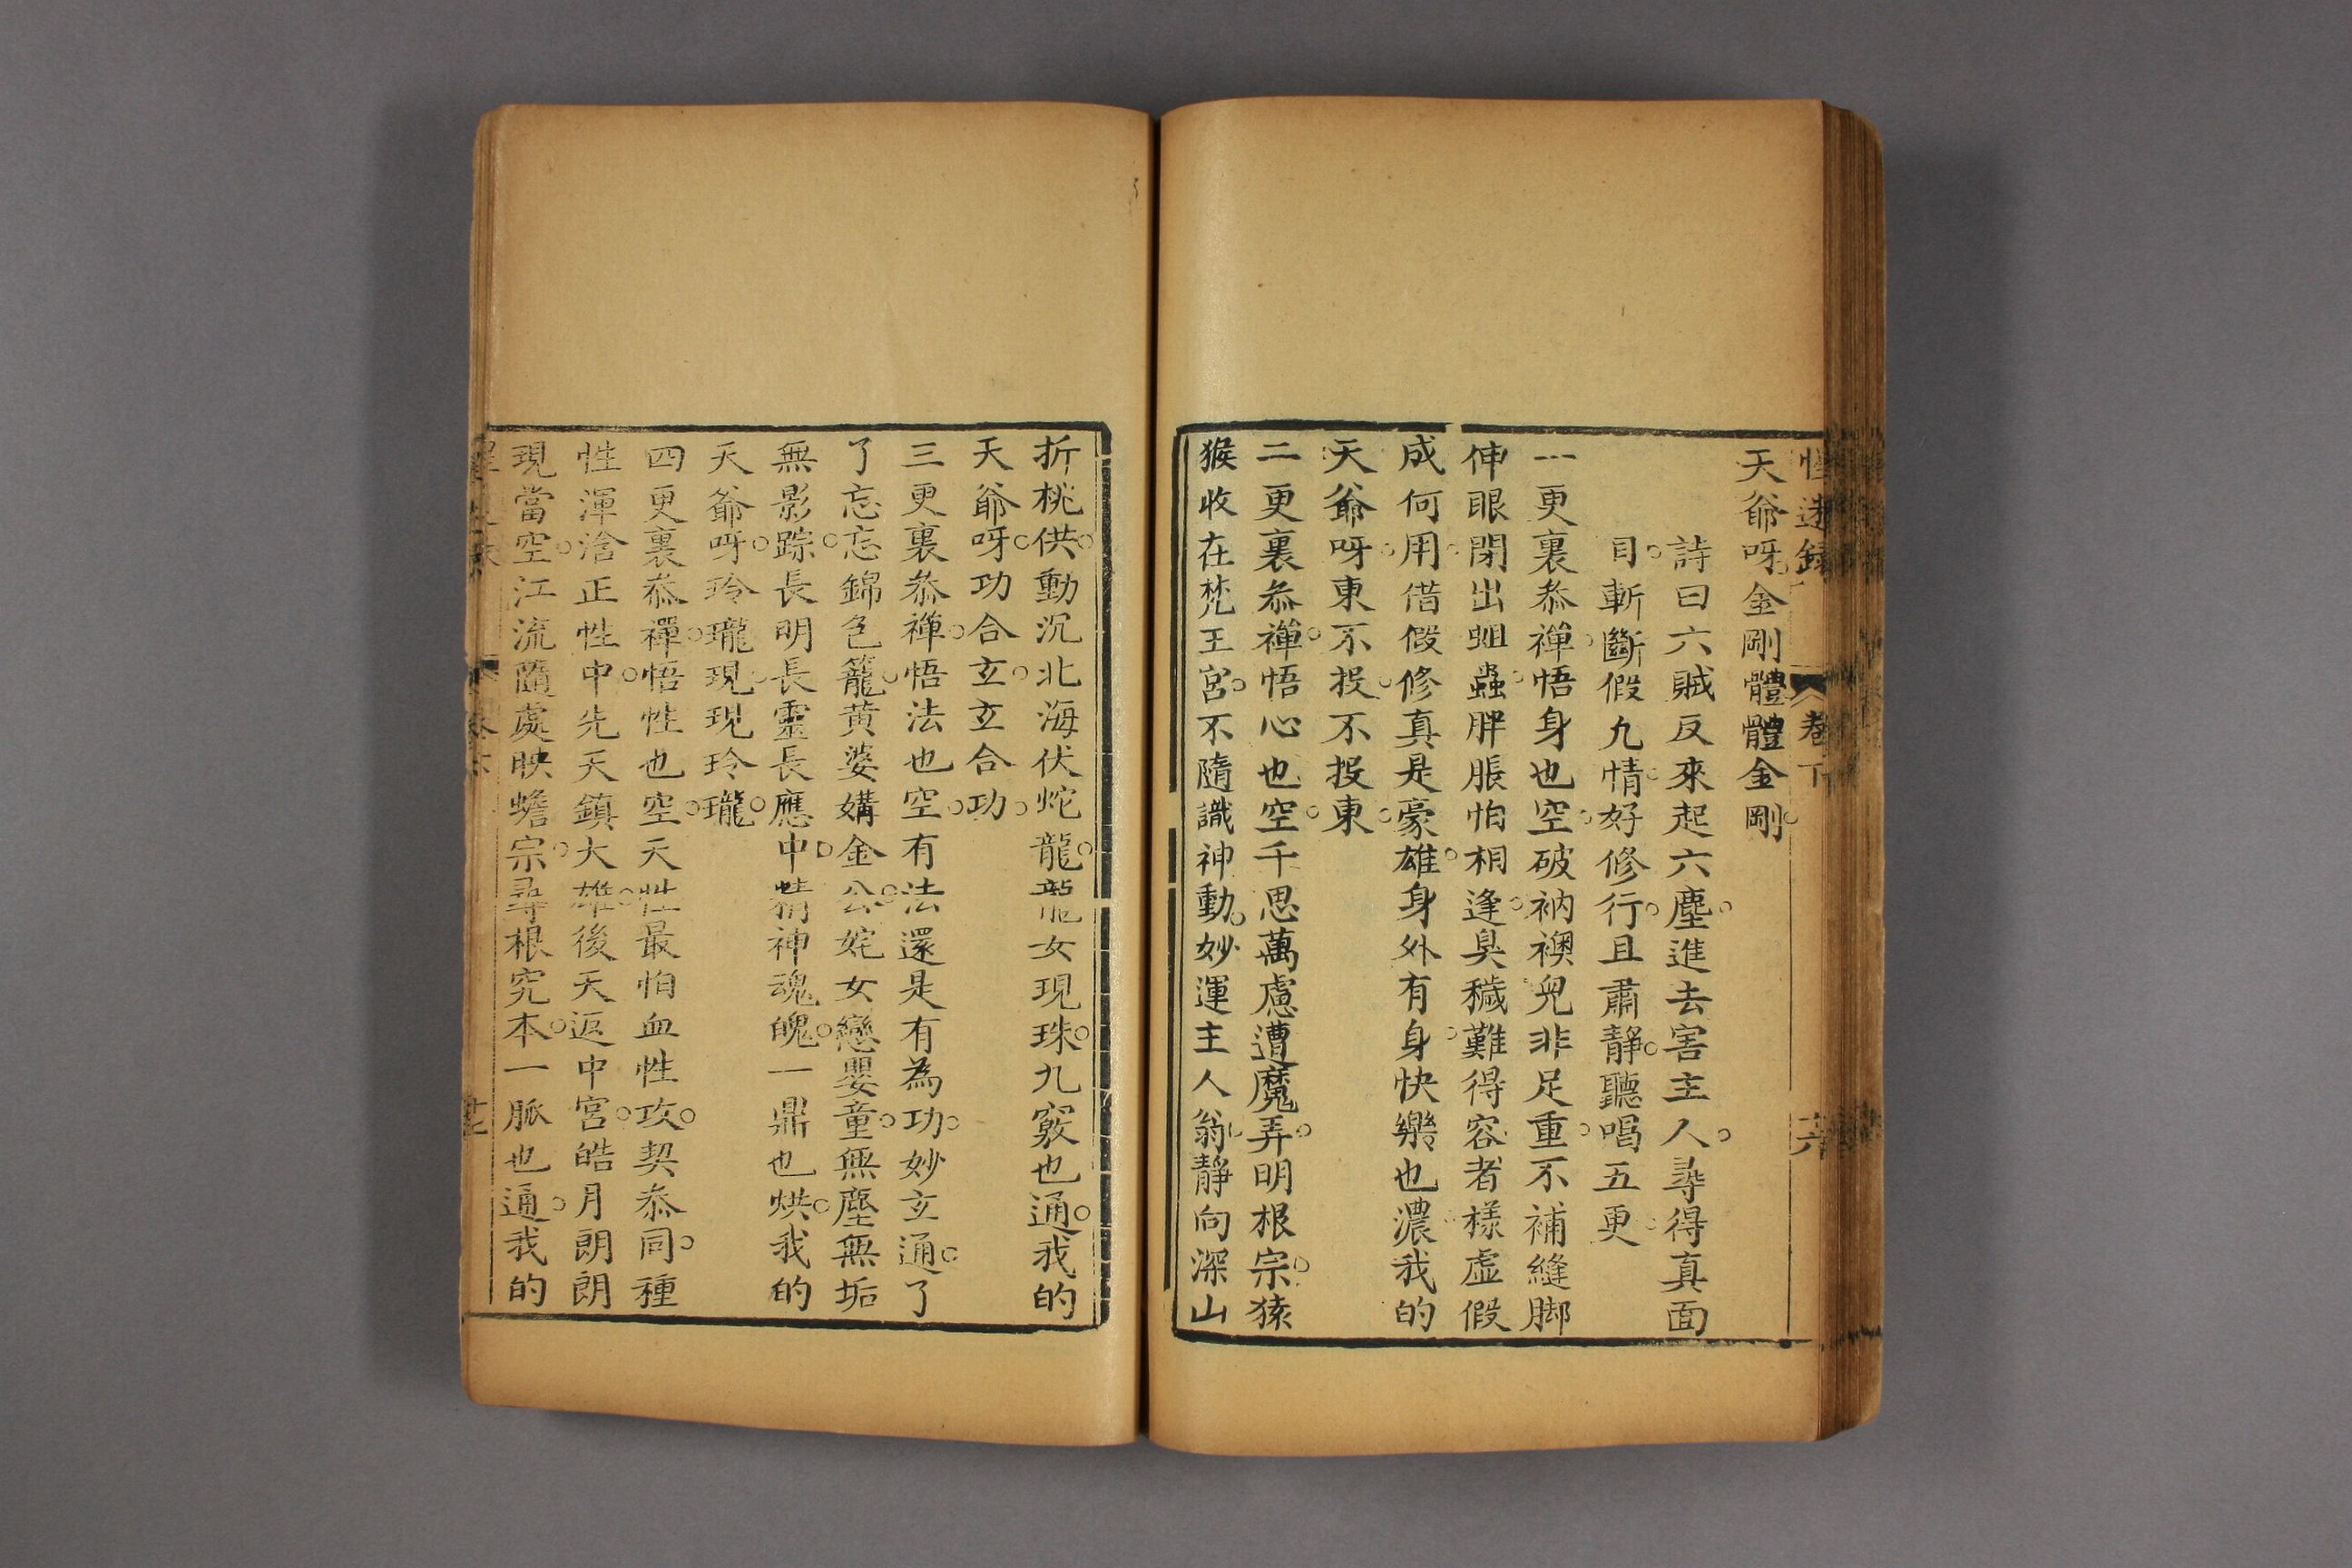 惺迷錄 卷下 十六
天爺呀。金剛體體金剛。
詩曰六賊反來起六塵。進去害主人。尋得真面
目。斬斷假九情。好修行。且肅靜。聽唱五更。
一更裏叅禪。悟身也空。破衲襖兒非足重。不補縫脚
伸眼閉。出蛆蟲。胖脹怕相逢。臭穢難得容者樣虛假
成何用。借假修真是豪雄。身外有身。快樂也濃。我的
天爺呀。東不投。不投東。
二更裏叅禪。悟心也空。千思萬慮遭魔弄。明根宗。猿
猴收在梵王宮。不隨識神動。妙運主人翁。靜向深山
折桃供。動沉北海伏蛇龍。龍女現珠。九竅也通。我的
天爺呀。功合玄。玄合功。
三更裏叅禪。悟法也空。有法還是有為功。妙玄通。了
了忘忘錦色籠。黄婆媾金公。姹女戀嬰童。無塵無垢
無影踪。長明長靈長應中。精神魂魄。一鼎也烘。我的
天爺呀。玲瓏現。現玲瓏。
四更裏叅禪。悟性也空。天性最怕血性攻。契叅同。種
性渾淪正性中。先天鎮大雄。後天返中宮。皓月朗朗
現當空。江流隨處映蟾宗。尋根究本。一脈也通。我的